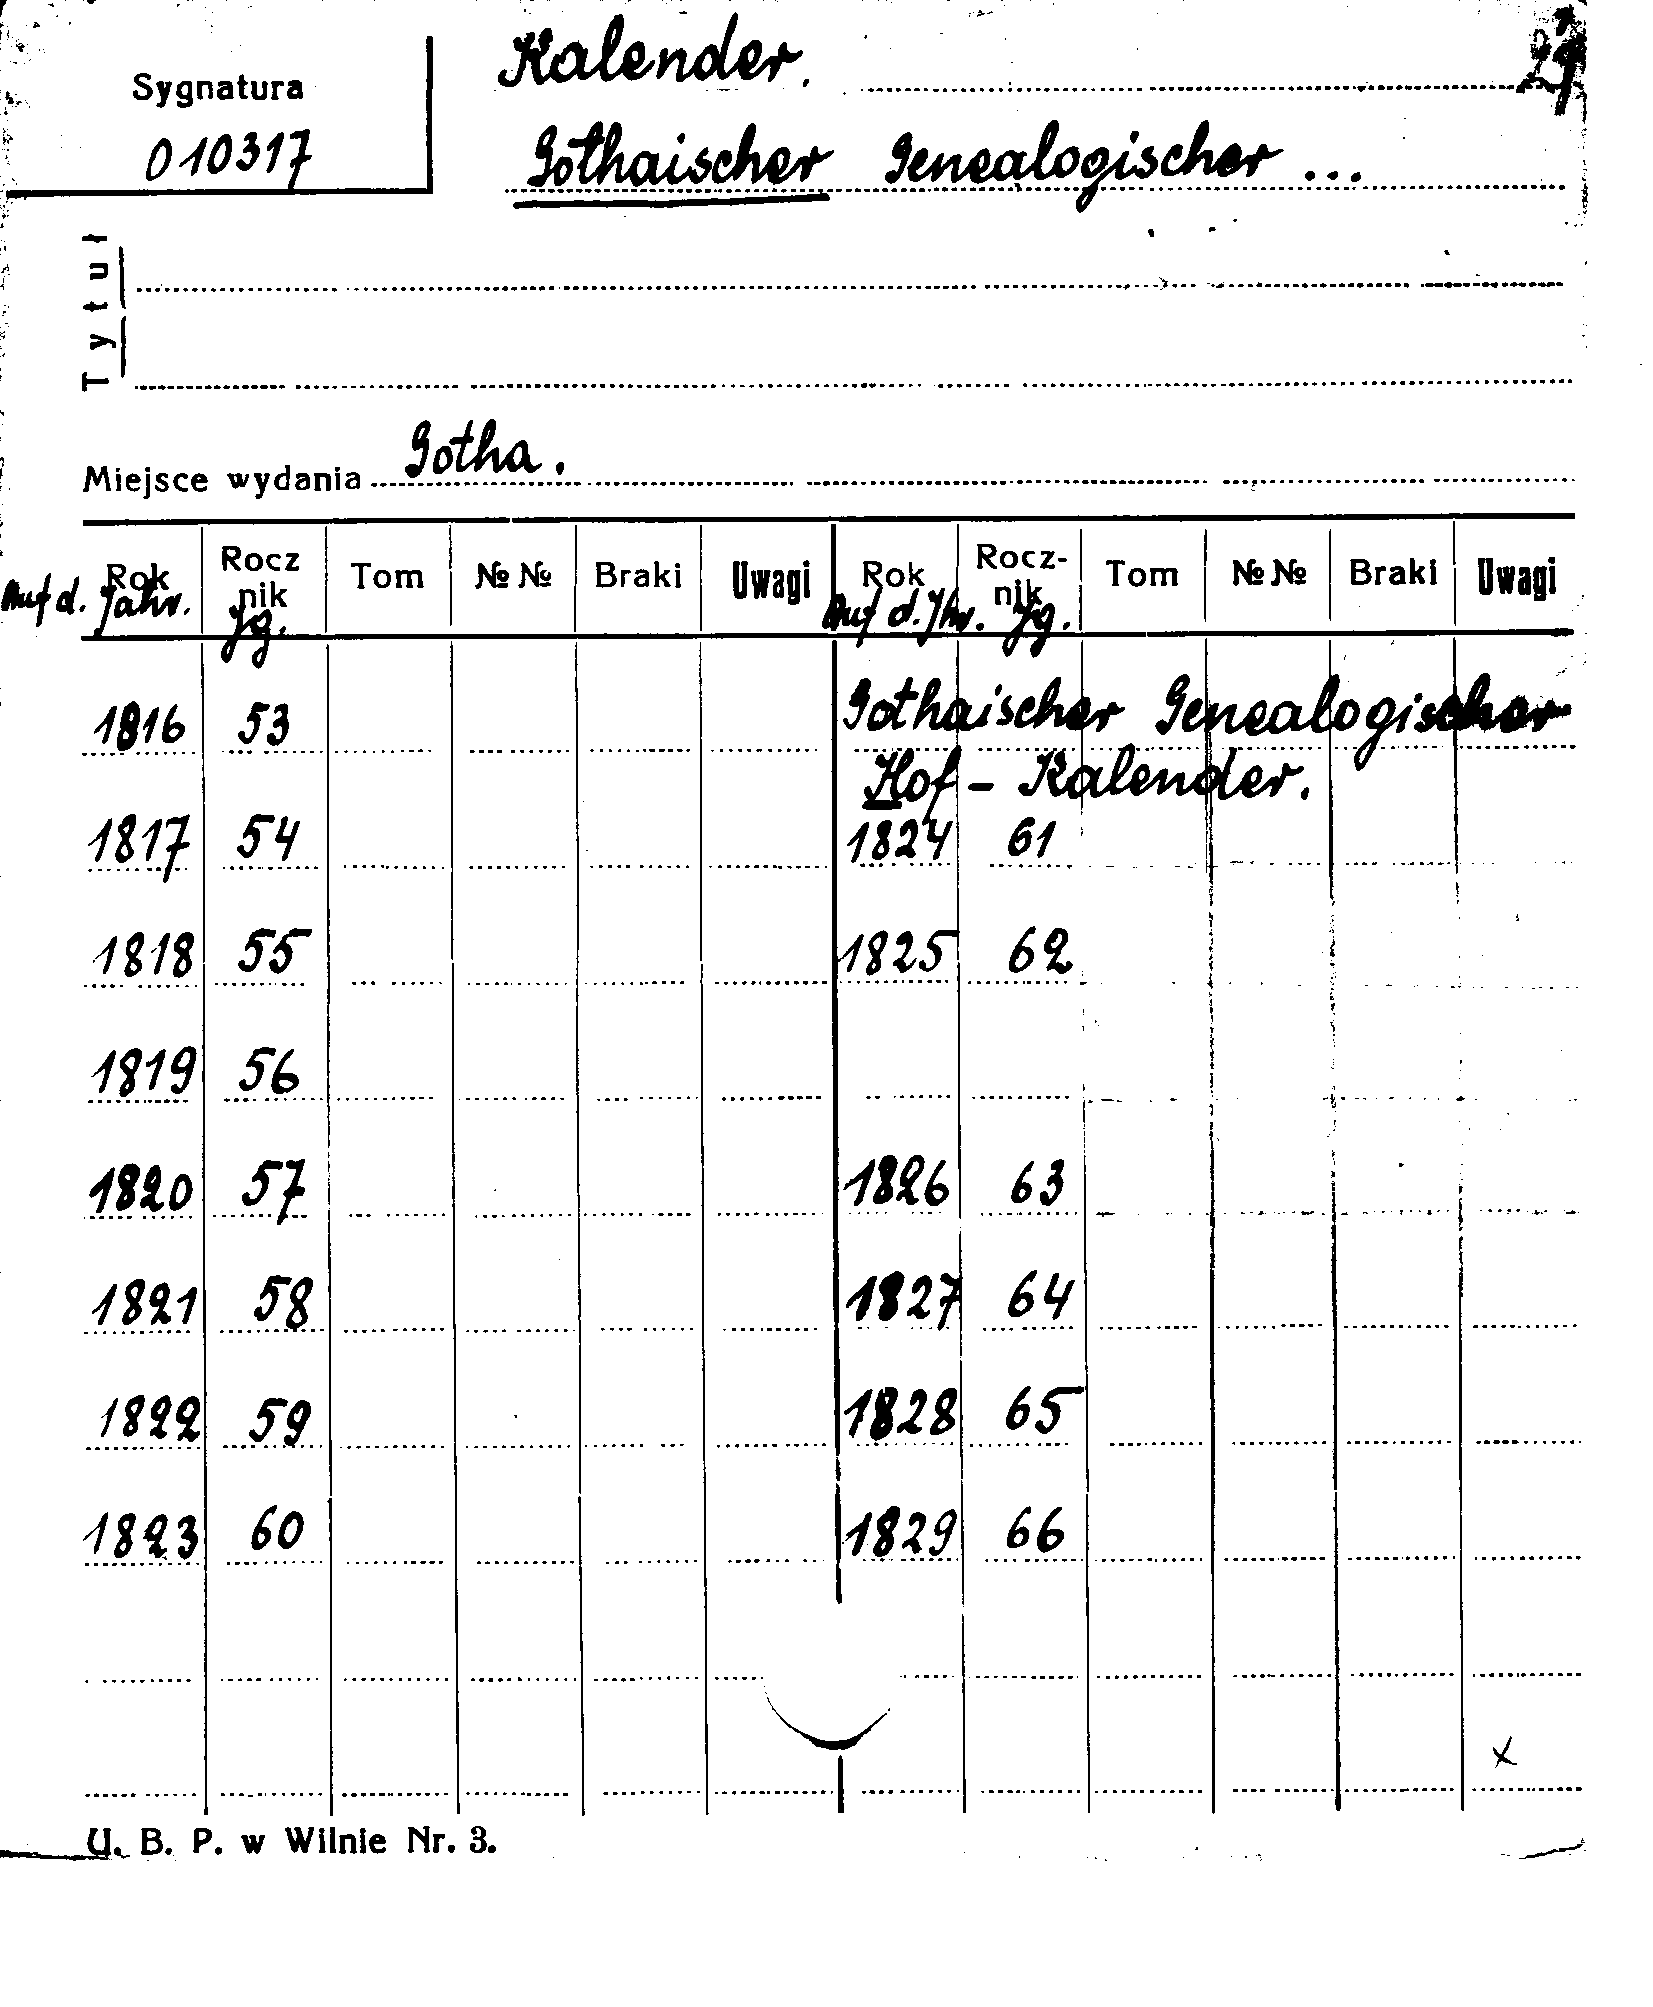 Kalender.
Sygnatura
010317
Gothaischer Genealogischer ...
Tytuł
Miejsce wydania Gotha.
Rok Rocz nik Tom №№ Braki Uwagi Rok Rocz- nik Tom №№ Braki Uwagi
Auf d. Jahr. Jg. Auf d. Jhr. Jg.
1816 53 Gothaischer Genealogischer
Hof - Kalender.
1817 54 1824 61
1818 55 1825 62
1819 56
1820 57 1826 63
1821 58 1827 64
1822 59 1828 65
1823 60 1829 66
x
U. B. P. w Wilnie Nr. 3.